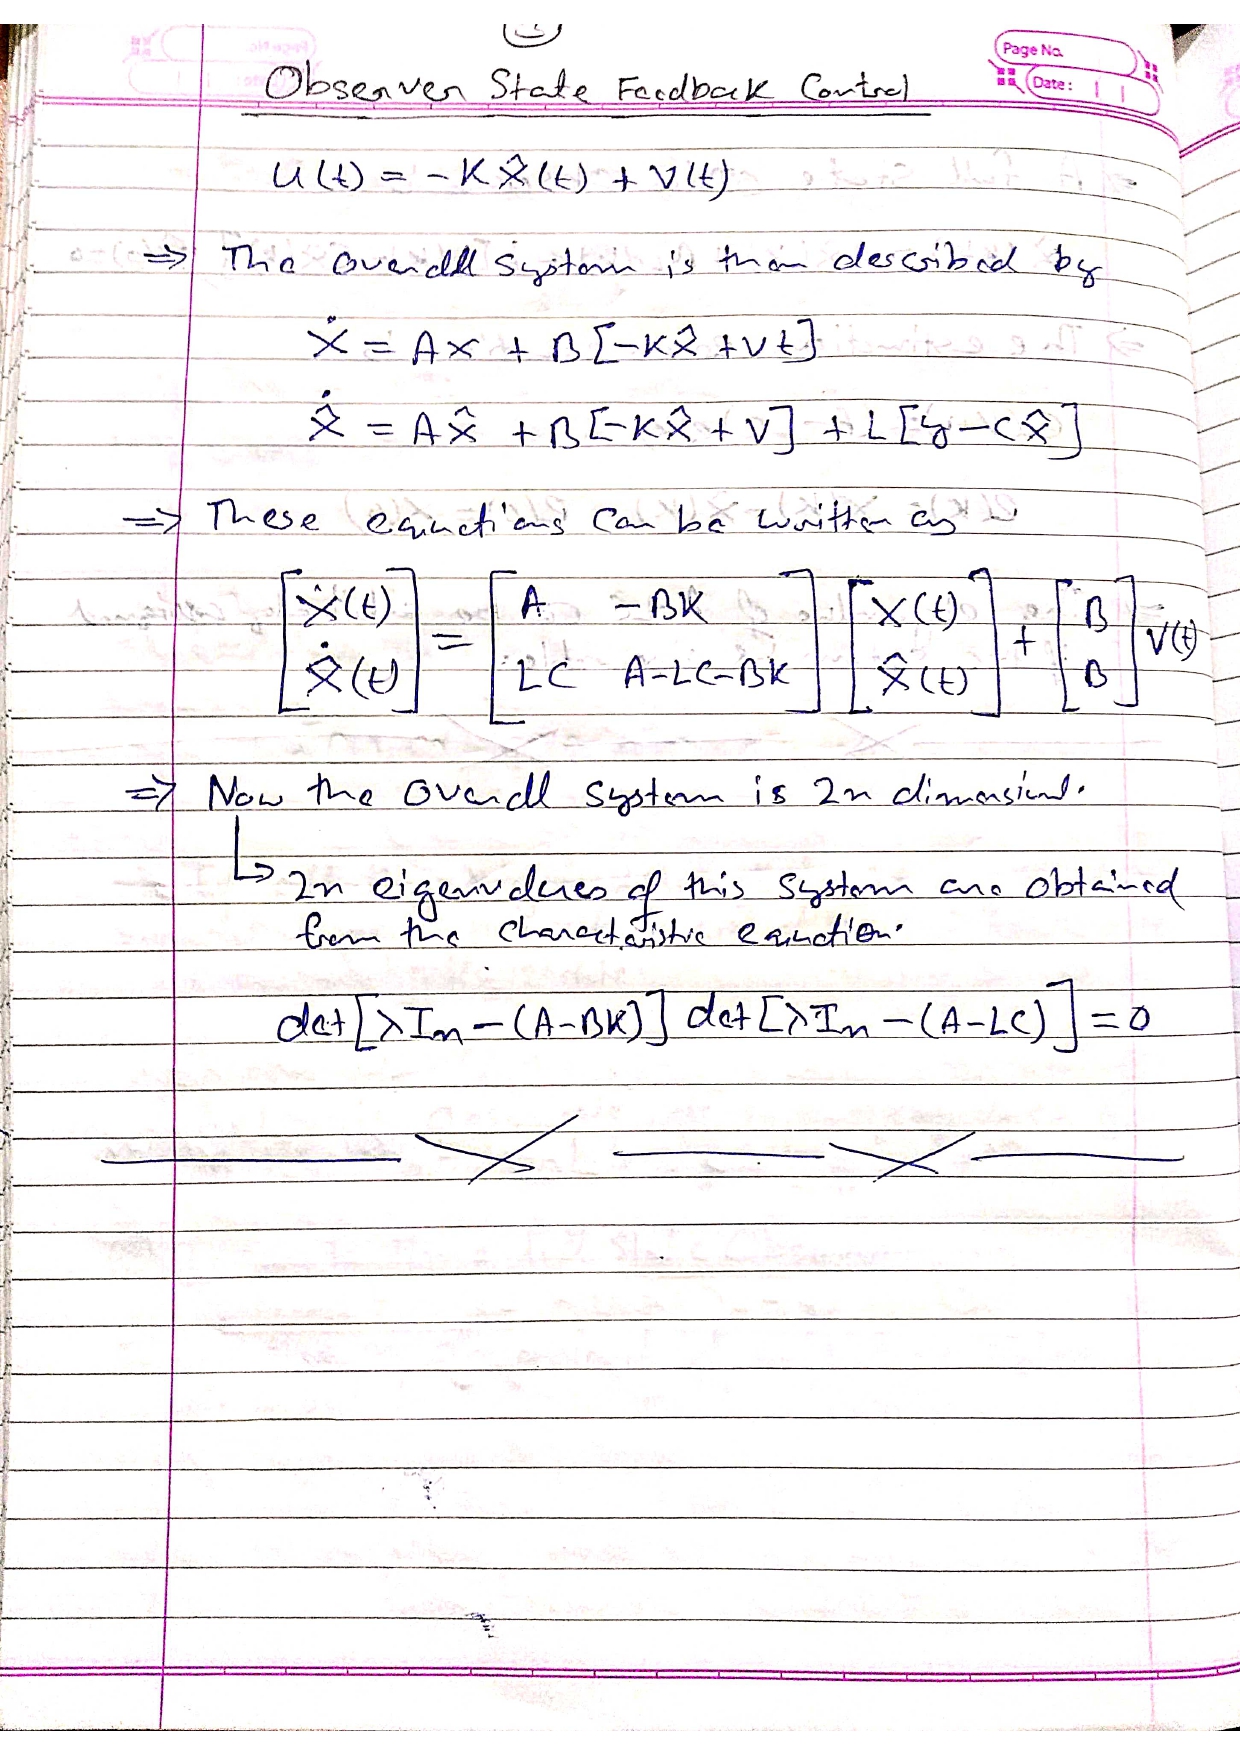 Page No.
Date:
Observer State Feedback Control
u(t) = -Kx̂(t) + v(t)
⇒ The overall system is then described by
ẋ = Ax + B[-Kx̂ + vt]
x̂̇ = Ax̂ + B[-Kx̂ + v] + L[y - Cx̂]
⇒ These equations can be written as
[ẋ(t)] = [A -BK] [x(t)] + [B] v(t)
[x̂̇(t)] [LC A-LC-BK] [x̂(t)] [B]
⇒ Now the overall system is 2n dimensional.
↳ 2n eigenvalues of this system are obtained
from the characteristic equation.
det[λIn - (A-BK)] det[λIn - (A-LC)] = 0